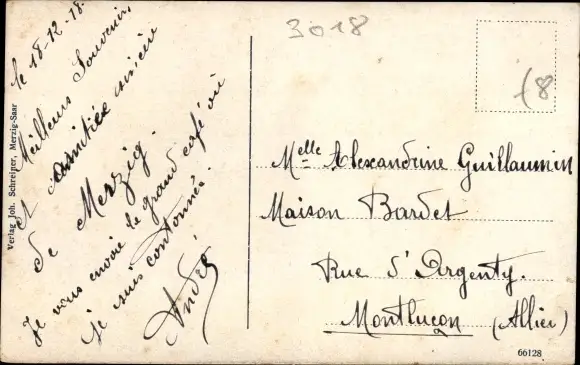 le 18-12-18.
Meilleurs Souvenirs,
et amitiée sincère
de Merzig.
Je vous envoie le grand café où
je suis cantonné.
André
Verlag Joh. Schreiner, Merzig-Saar
3018
18
Melle Alexandrine Guillaumin
Maison Bardet
Rue d'Argenty.
Montluçon (Allier)
66128